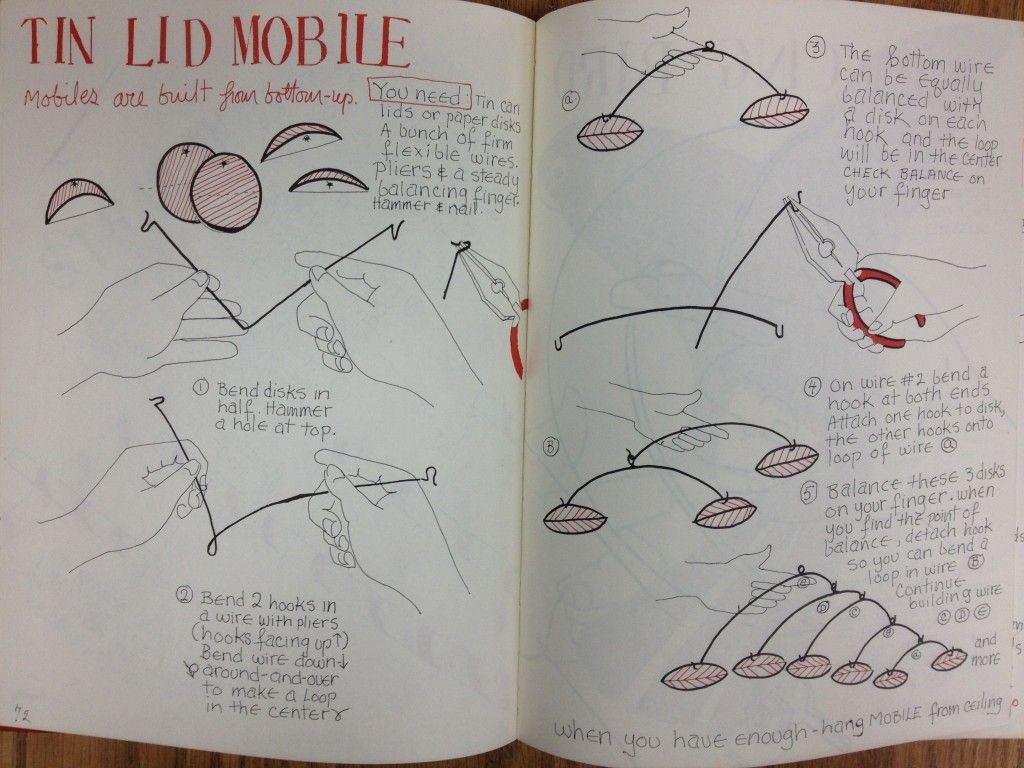 TIN LID MOBILE
Mobiles are built from bottom-up.
You need: Tin can
lids or paper disks
A bunch of firm
flexible wires.
Pliers & a steady
balancing finger.
Hammer & nail.
① Bend disks in
half. Hammer
a hole at top.
② Bend 2 hooks in
a wire with pliers
(hooks facing up↑)
Bend wire down↓
around-and-over
to make a loop
in the center
72
③ The bottom wire
can be equally
balanced with
a disk on each
hook and the loop
will be in the center
CHECK BALANCE on
your finger
ⓐ
④ On wire #2 bend a
hook at both ends
Attach one hook to disk,
the other hooks onto
loop of wire ⓐ
Ⓑ
⑤ Balance these 3 disks
on your finger. when
you find the point of
balance, detach hook
so you can bend a
loop in wire Ⓑ
Continue
building wire
Ⓒ Ⓓ Ⓔ
and
more
ⓔ ⓓ ⓒ Ⓑ ⓐ
when you have enough-hang MOBILE from ceiling